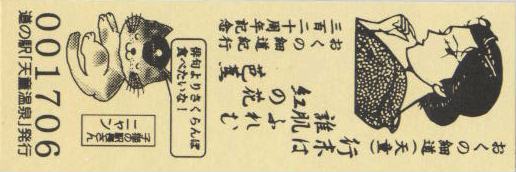 おくの細道(天童)
行末は
誰肌ふれむ
紅の花
芭蕉
おくの細道紀行
三百二十周年記念
俳句よりさくらんぼ
食べたいな!
子猫の駅長さん
001706
道の駅「天童温泉」発行